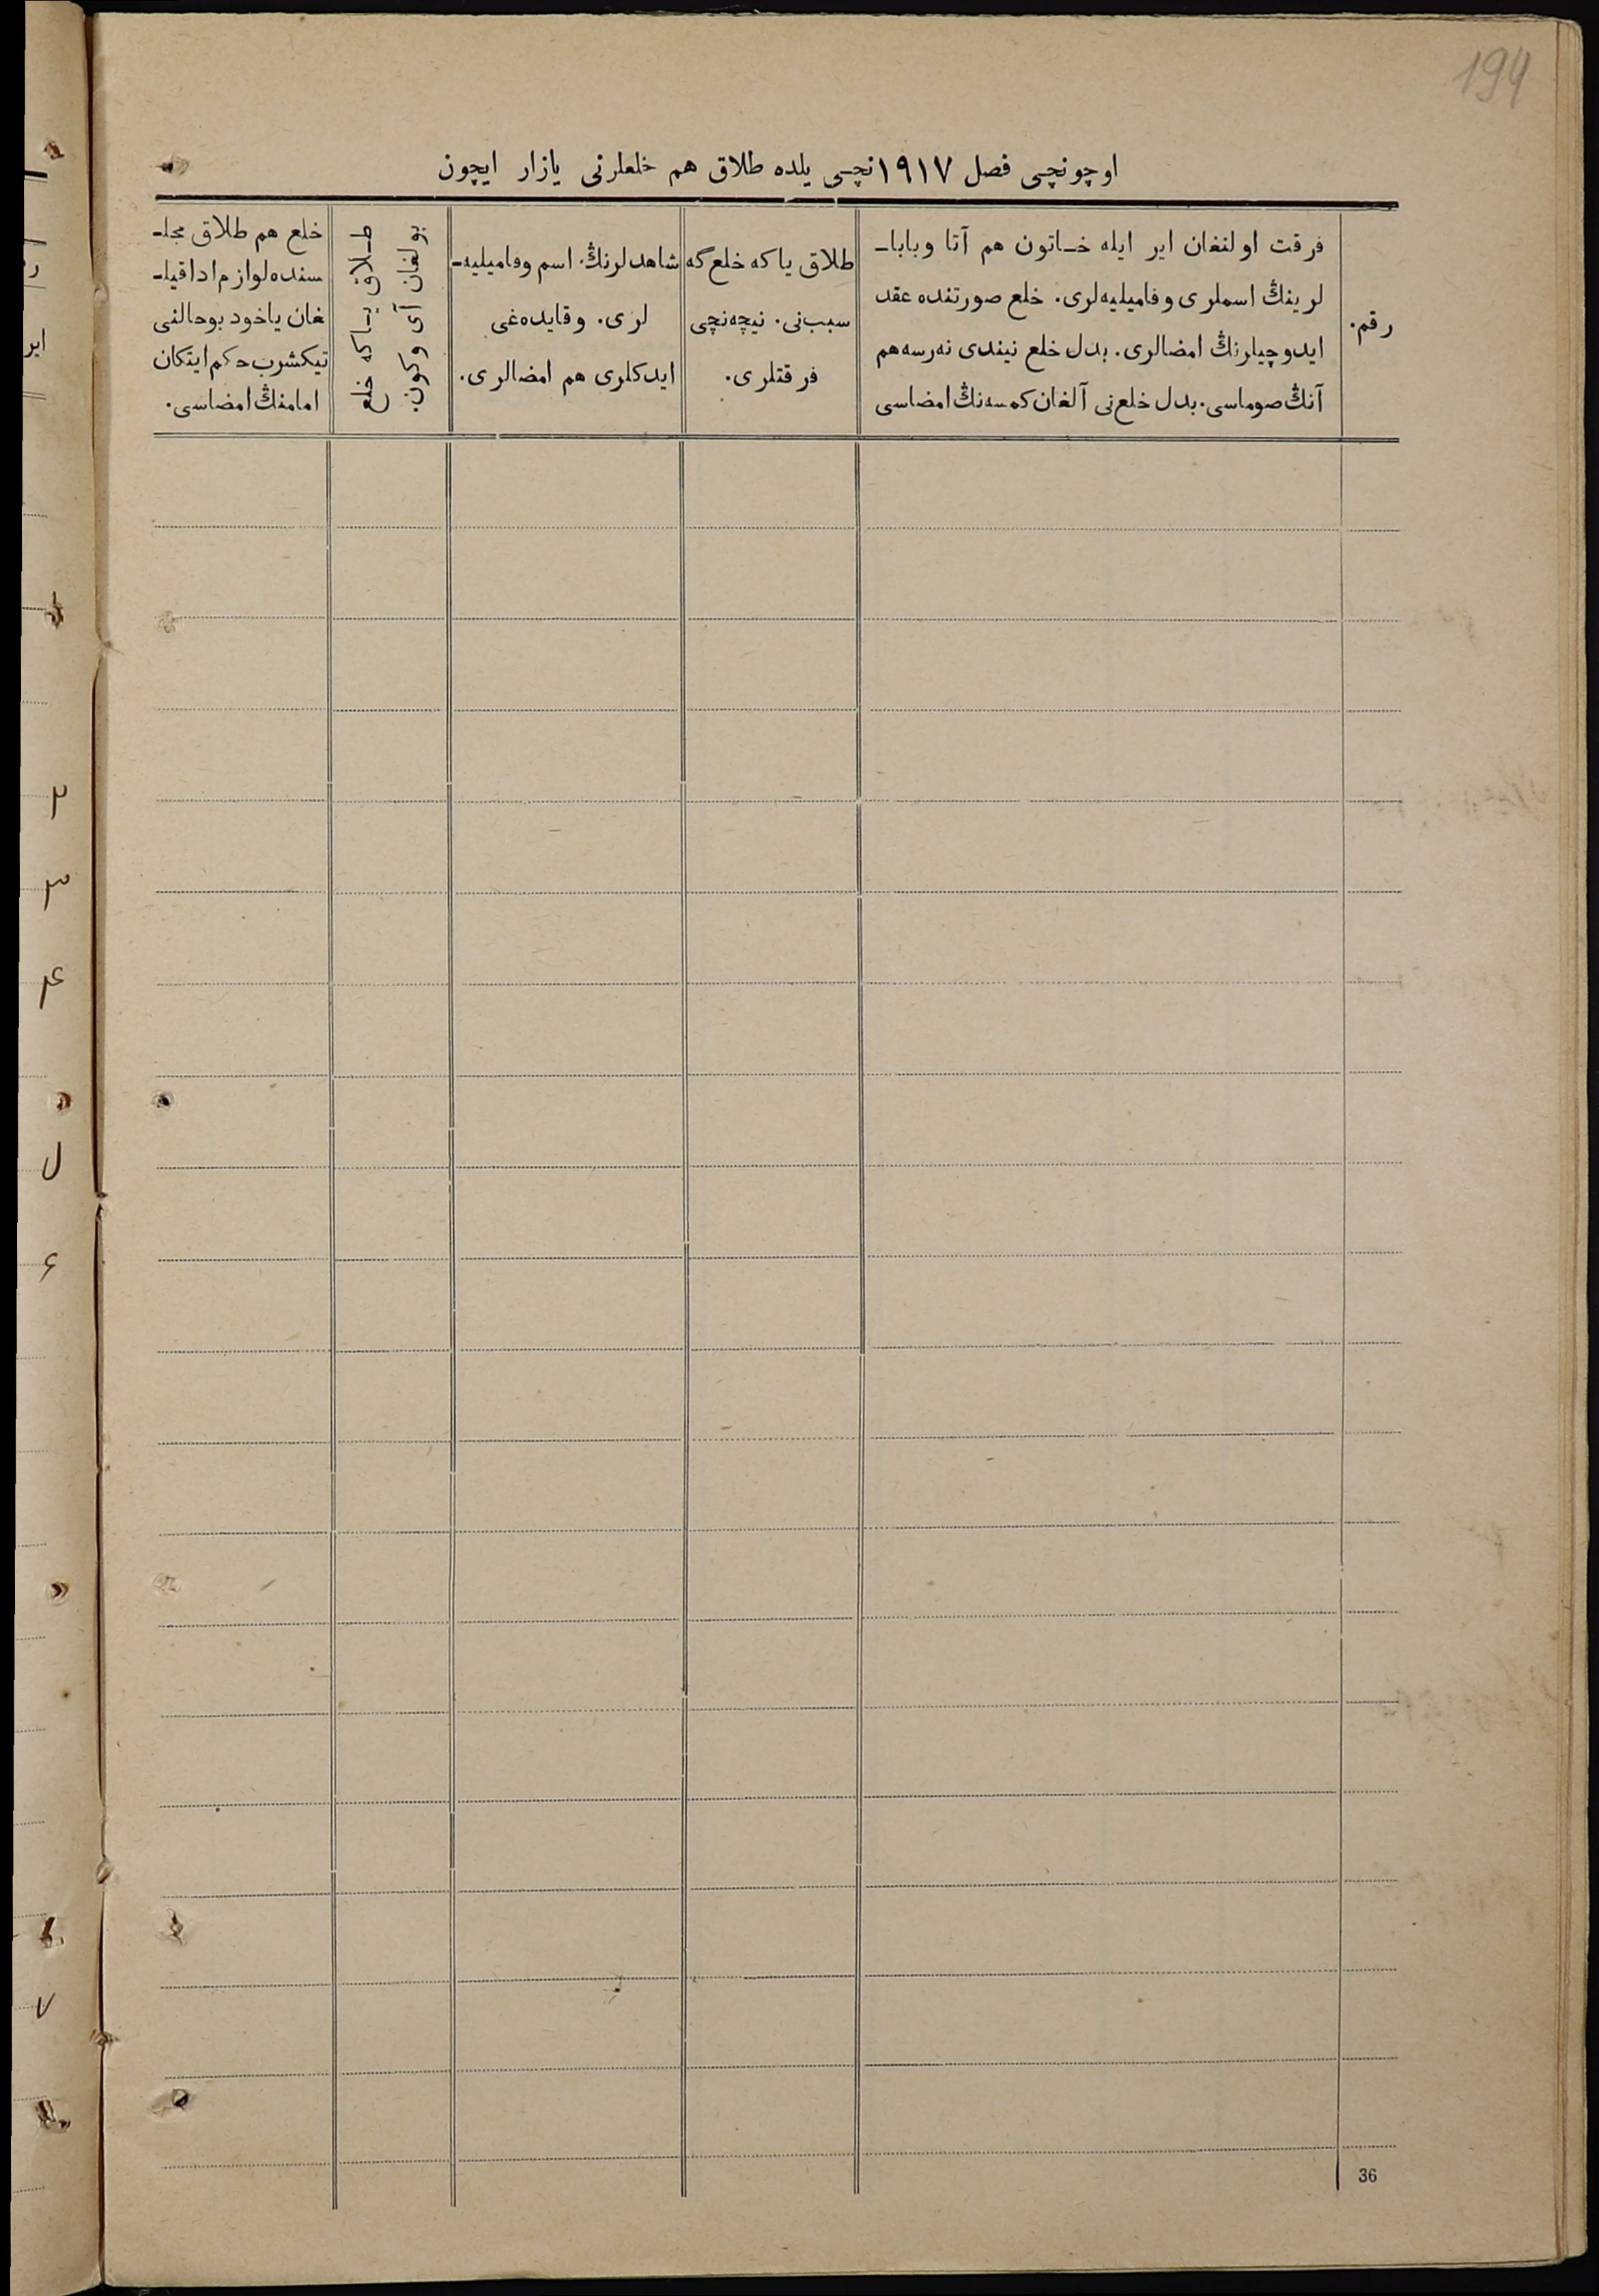 194
اوچونچی فصل ۱۹۱۷نچی یلده طلاق هم خلعلرنی یازار ایچون
رقم.
فرقت اولنغان ایر ایله خـاتون هم آتا وباباـ
لرینڭ اسملری وفامیلیه‌لری. خلع صورتنده عقد
ایدوچیلرنڭ امضالری. بدل خلع نیندی نه‌رسه‌هم
آنڭ صوماسی. بدل خلع‌نی آلغان کمسه‌نڭ امضاسی
طلاق یاکه خلع‌گه
سبب‌نی. نیچه‌نچی
فرقتلری.
شاهدلرنڭ. اسم وفامیلیه‌ـ
لری. وقایده‌غی
ایدکلری هم امضالری.
طـلاق یـاکه خلع
بولغان آی وکون.
خلع هم طلاق مجلـ
سنده‌لوازم اداقیلـ
غان یاخود بوحالنی
تیکشرب حکم ایتکان
امامنڭ امضاسی.
36
ایر
۲
۳
۴
۶
۷